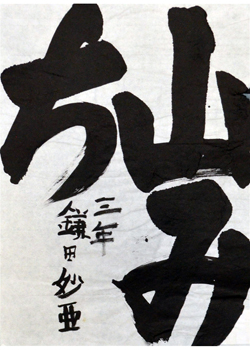 山み
ち
三年
鎌田妙亜